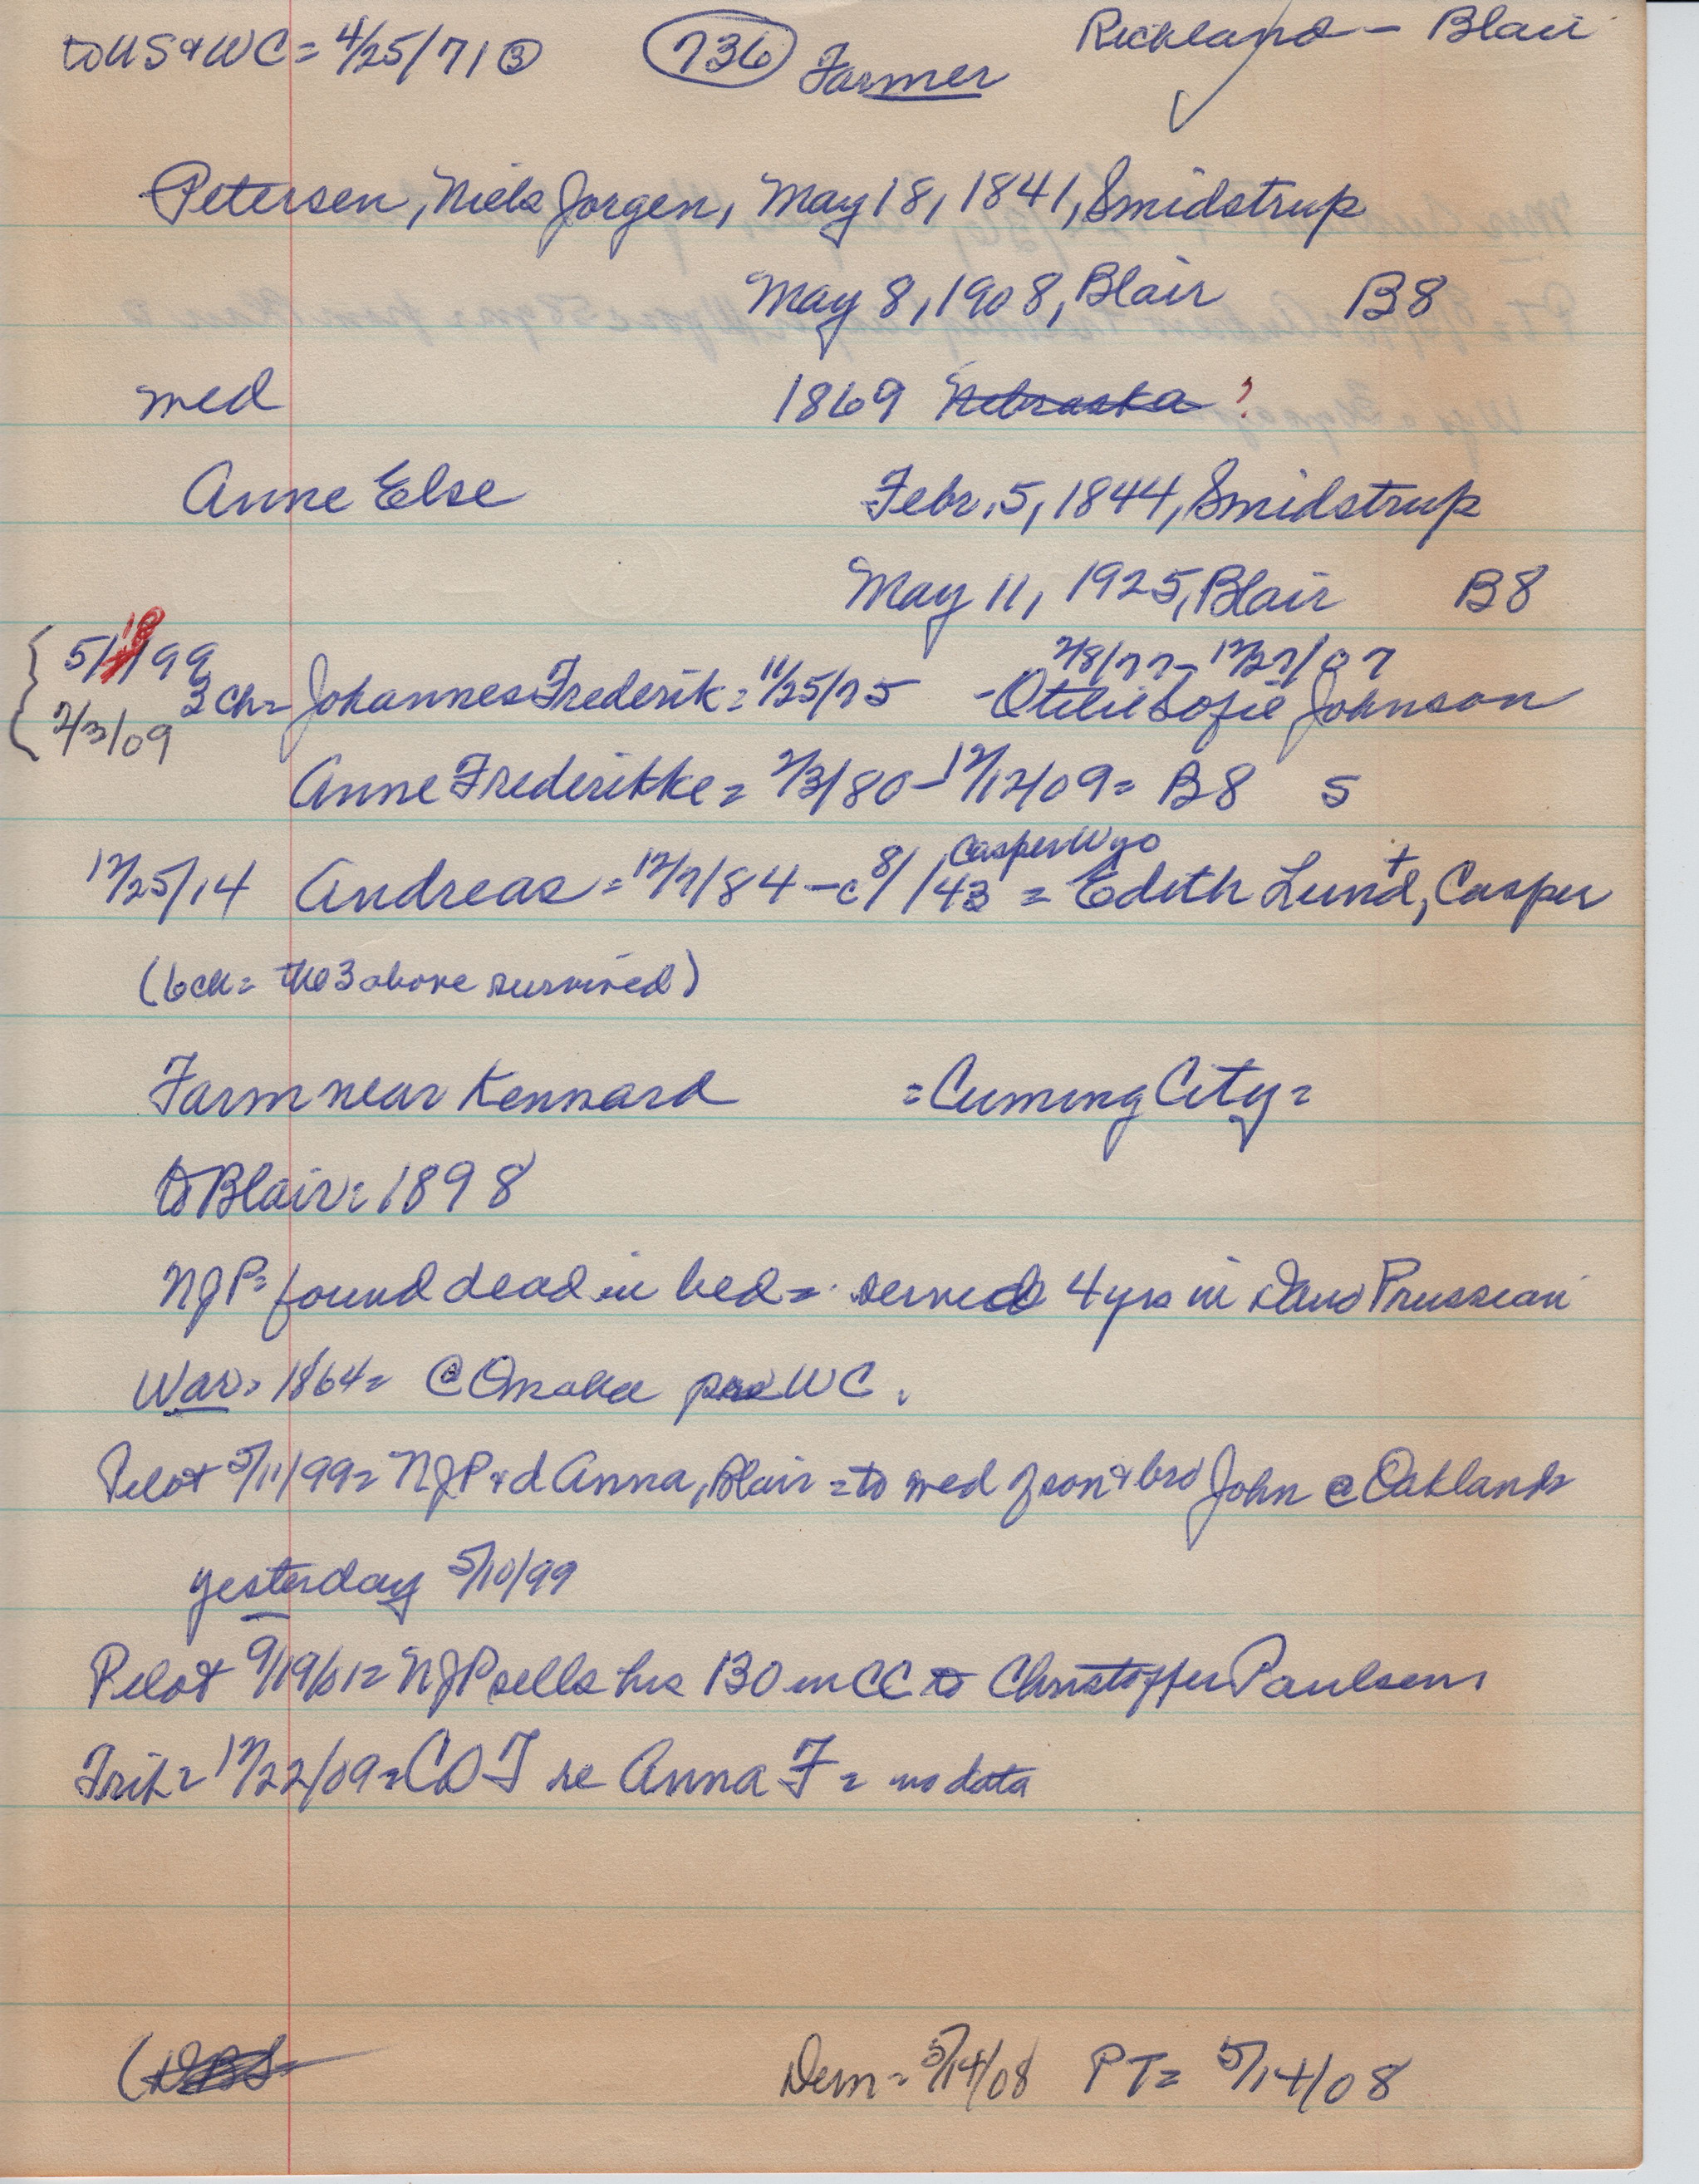 to US & WC = 4/25/71 ③ 736 Farmer Richland - Blair
Petersen, Niels Jorgen, May 18, 1841, Smidstrup
May 8, 1908, Blair B8
med 1869 Nebraska ?
Anne Else Febr. 5, 1844, Smidstrup
May 11, 1925, Blair B8
5/10/99 2/8/77 - 12/27/07
2/3/09 3 ch = Johannes Frederik = 11/25/75 - Otelie Sofie Johnson
Anne Frederikke = 2/3/80 - 12/12/09 = B8 S
Casper Wyo
12/25/14 Andreas = 12/7/84 - c 8/ /43 = Edith Lund, Casper
(6 ch = the 3 above survived)
Farm near Kennard = Cuming City =
to Blair = 1898
NJP = found dead in bed = served 4 yrs in Dano Prussian
War = 1864 = @ Omaha pre WC.
Pilot 5/11/99 = NJP & d Anna, Blair = to wed of son & bro John @ Oakland
yesterday 5/10/99
Pilot 9/19/01 = NJP sells his 130 in CC to Christoffer Paulsen
Trib = 12/22/09 = COT re Anna F = no data
Dem = 5/14/08 PT = 5/14/08